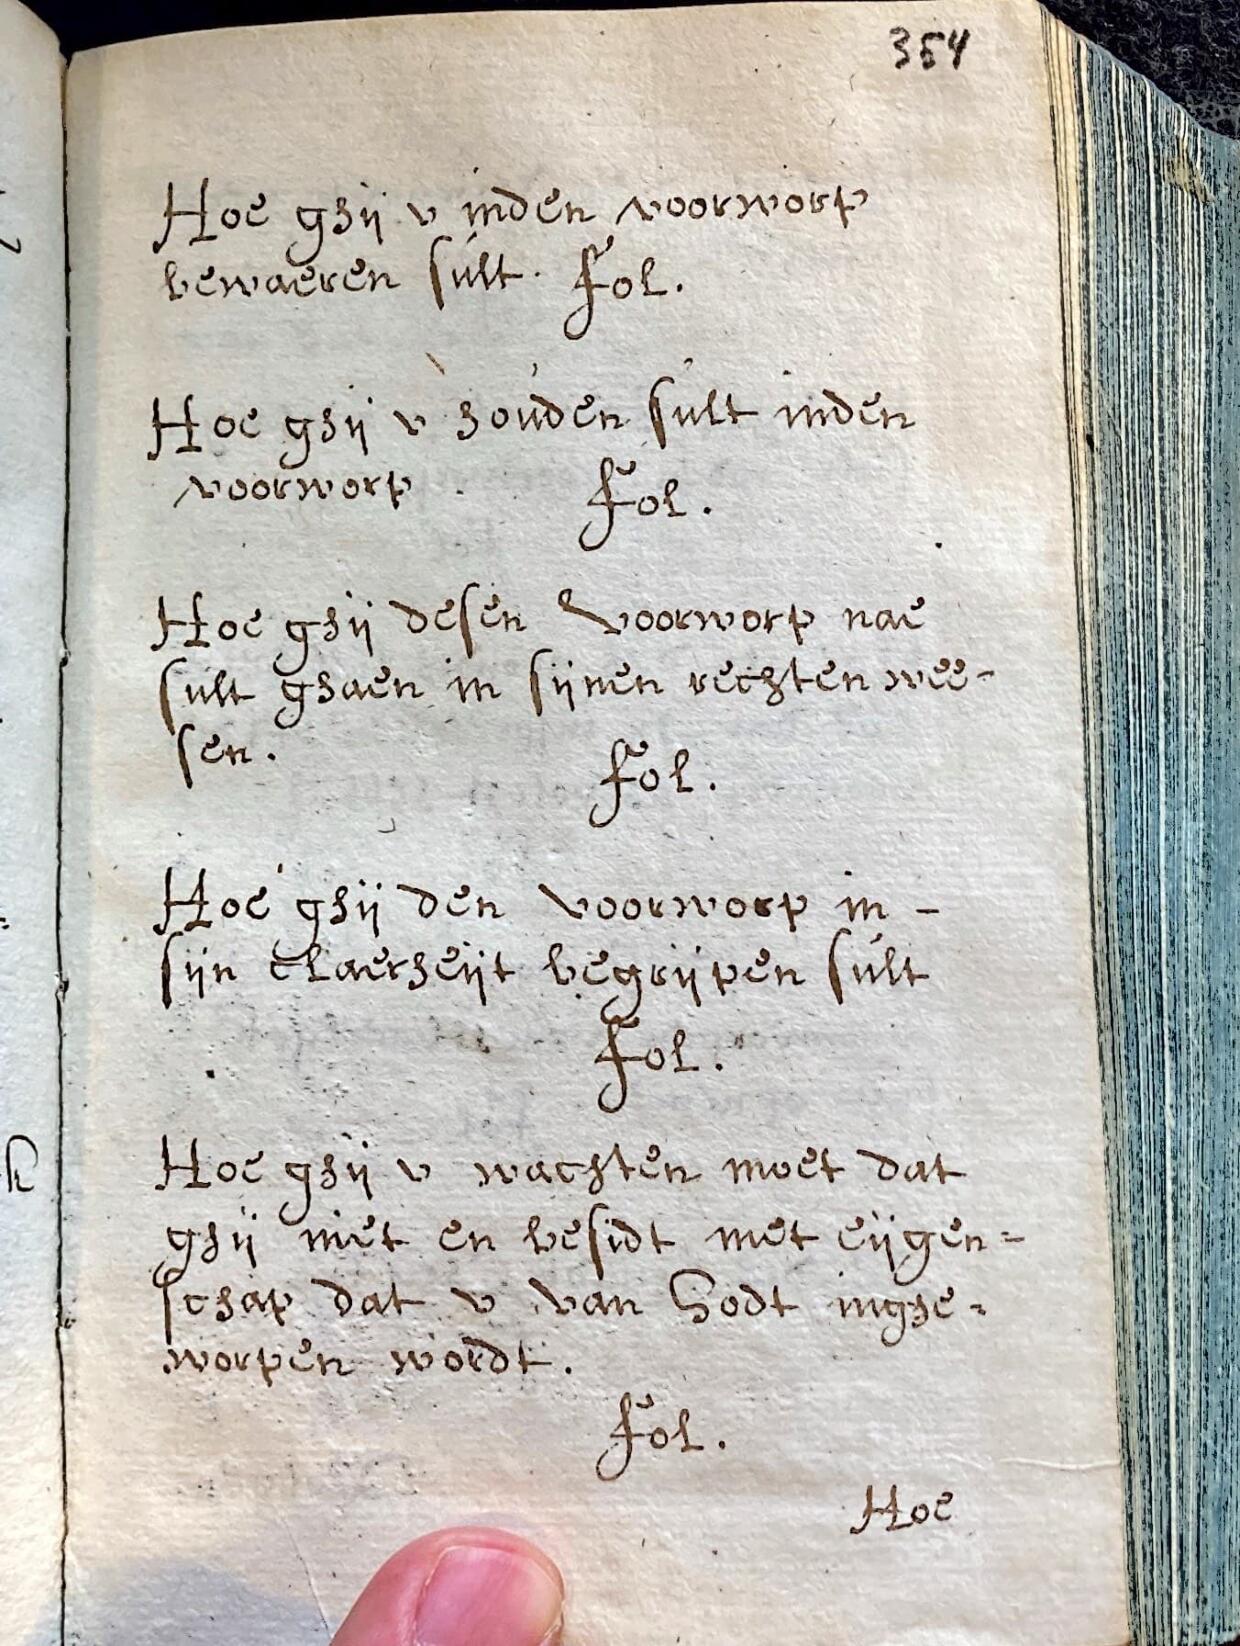 354
Hoe ghij v inden voorworp
bewaeren sult. Fol.
Hoe ghij v houden sult inden
voorworp. Fol.
Hoe ghij desen voorworp nae
sult ghaen in sijnen rechten wee-
sen. Fol.
Hoe ghij den voorworp in-
sijn claerheijt begrijpen sult
Fol.
Hoe ghij v wachten moet dat
ghij niet en besidt met eijgen=
schap dat v van Godt inghe=
worpen wordt.
Fol.
Hoe